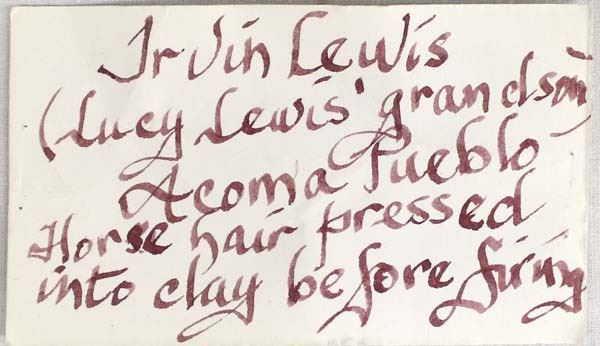 Irvin Lewis
(Lucy Lewis' grandson)
Acoma Pueblo
Horse hair pressed
into clay before firing